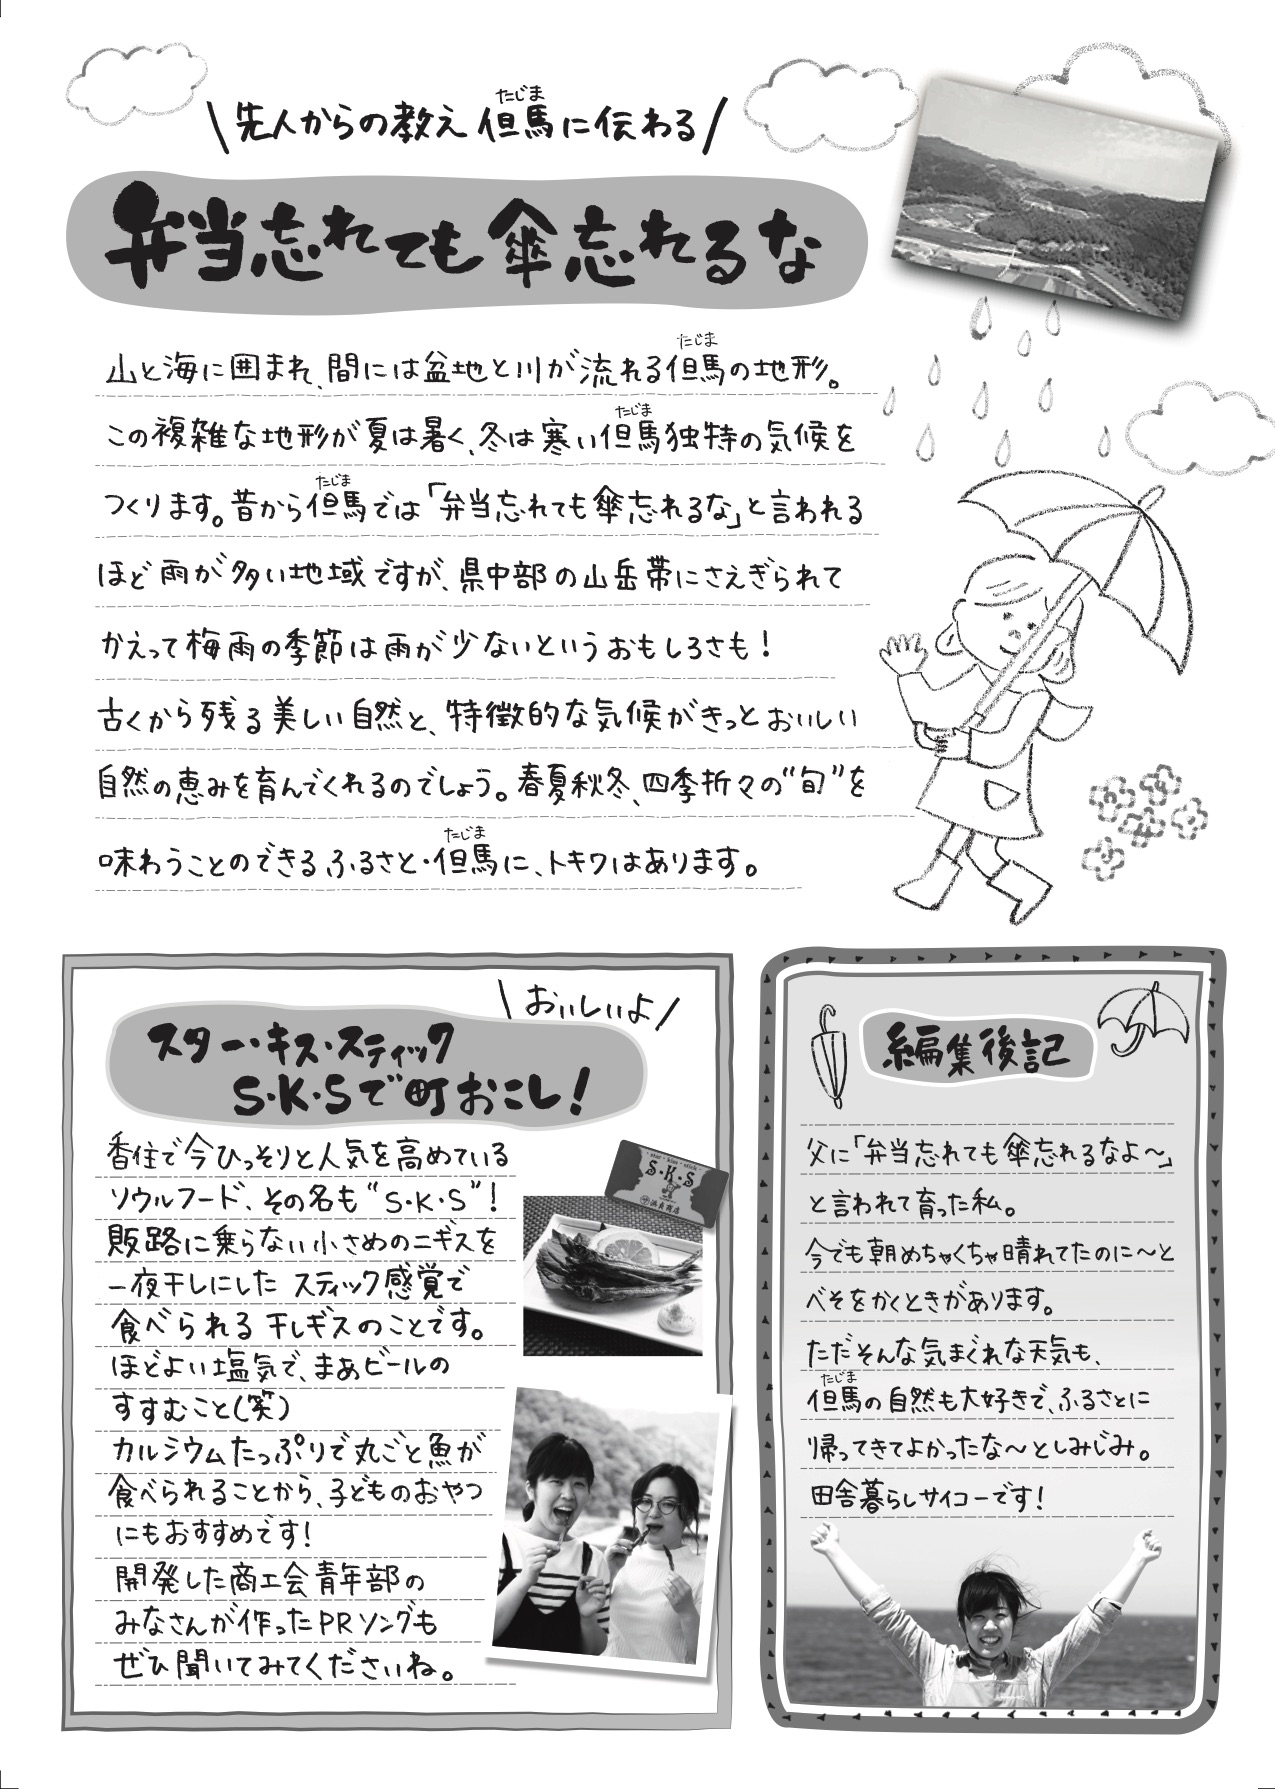 先人からの教え 但馬に伝わる
たじま
弁当忘れても傘忘れるな
たじま
山と海に囲まれ、間には盆地と川が流れる但馬の地形。
たじま
この複雑な地形が夏は暑く、冬は寒い但馬独特の気候を
たじま
つくります。昔から但馬では「弁当忘れても傘忘れるな」と言われる
ほど雨が多い地域ですが、県中部の山岳帯にさえぎられて
かえって梅雨の季節は雨が少ないというおもしろさも！
古くから残る美しい自然と、特徴的な気候がきっとおいしい
自然の恵みを育んでくれるのでしょう。春夏秋冬、四季折々の“旬”を
たじま
味わうことのできるふるさと・但馬に、トキワはあります。
おいしいよ
スター・キス・スティック
S・K・Sで町おこし！
香住で今ひっそりと人気を高めている
ソウルフード、その名も“S・K・S”！
販路に乗らない小さめのニギスを
一夜干しにした スティック感覚で
食べられる干しギスのことです。
ほどよい塩気で、まあビールの
すすむこと（笑）
カルシウムたっぷりで丸ごと魚が
食べられることから、子どものおやつ
にもおすすめです！
開発した商工会青年部の
みなさんが作ったPRソングも
ぜひ聞いてみてくださいね。
star・kiss・stick
S・K・S
浜貞商店
編集後記
父に「弁当忘れても傘忘れるなよ〜」
と言われて育った私。
今でも朝めちゃくちゃ晴れてたのに〜と
べそをかくときがあります。
ただそんな気まぐれな天気も、
たじま
但馬の自然も大好きで、ふるさとに
帰ってきてよかったな〜としみじみ。
田舎暮らしサイコーです！